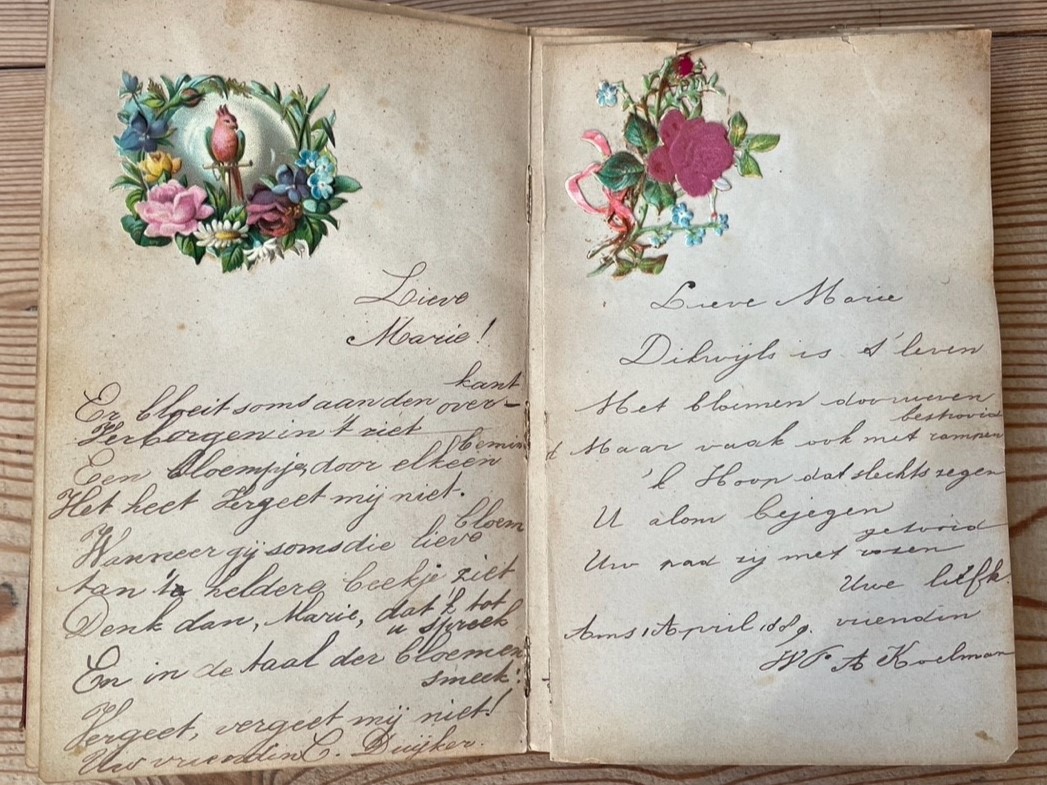 Lieve
Marie!
kant
Er bloeit soms aan den over-
Verborgen in 't riet
bemin
Een bloempje, door elkeen
Het heet Vergeet mij niet.
bloem
Wanneer gij soms die lieve
Aan 'n heldere beekje ziet
Denk dan, Marie, dat 'k tot
u spreek
En in de taal der bloemen
smeek:
Vergeet, vergeet mij niet!
Uw vriendin C. Duijker.
Lieve Marie
Dikwijls is 't leven
Met bloemen doorweven
bestrooid
Maar vaak ook met rampen
'k Hoop dat slechts zegen
U alom bejegen
getooid
Uw pad zij met rozen
Uwe liefh.
vriendin
Ams 1 April 1889.
W. A Koelman